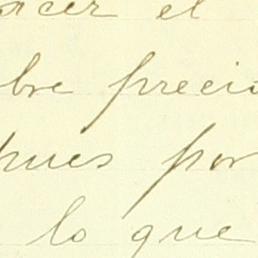 acer el
bre precio
pues por
lo que